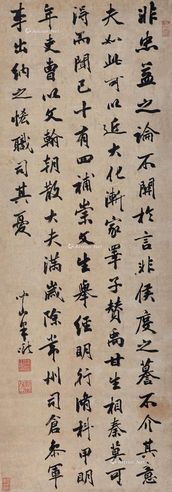 非忠益之論不關於言非侯度之謩不介其意
夫如此可以近大化漸家睪子賛禹甘生相秦莫可
得而聞已十有四補崇文生舉經明行脩科甲明
年吏曹以文翰朝散大夫滿歲除常州司倉叅軍
事出納之恡職司其憂